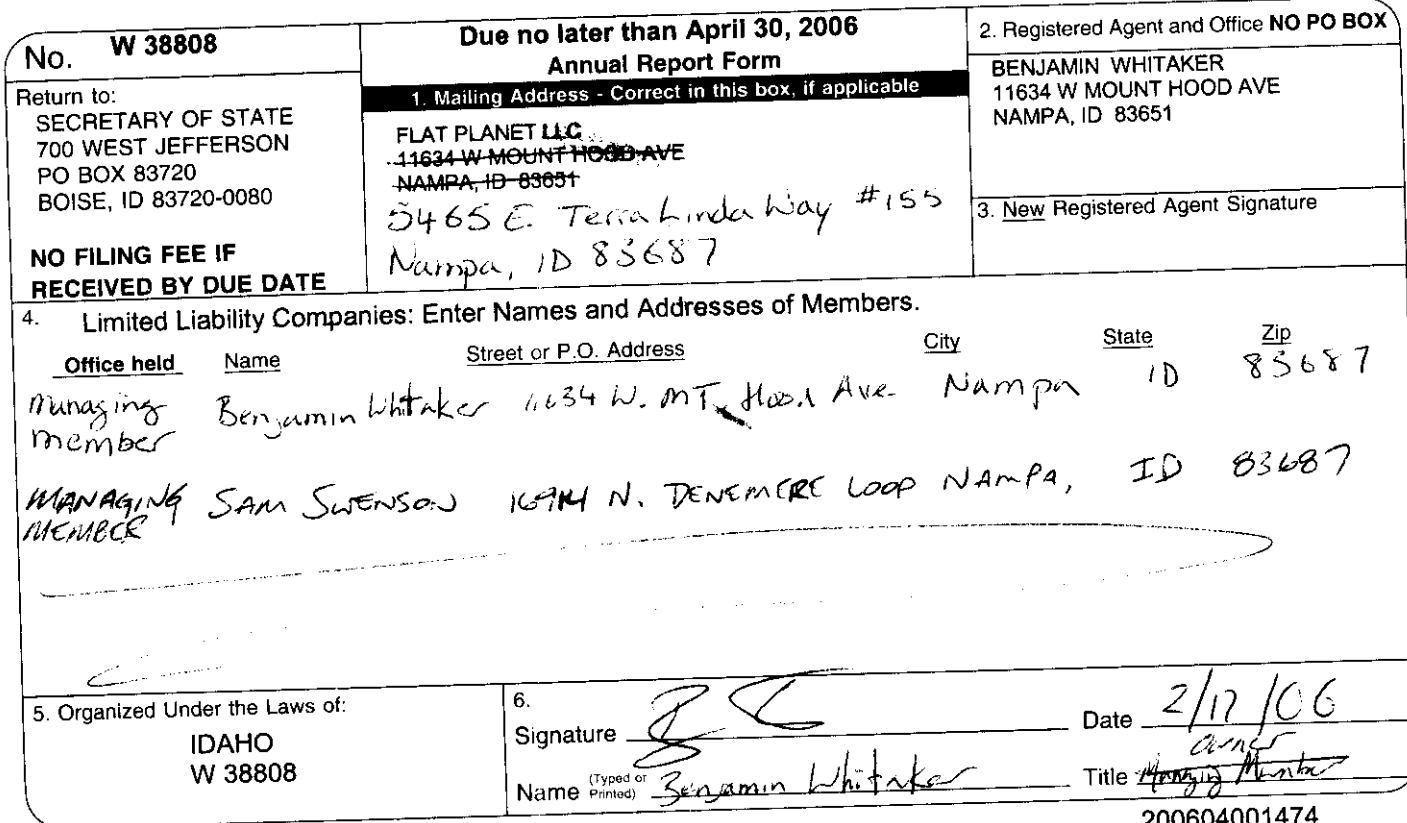 No. W 38808
Return to:
SECRETARY OF STATE
700 WEST JEFFERSON
PO BOX 83720
BOISE, ID 83720-0080
NO FILING FEE IF
RECEIVED BY DUE DATE
Due no later than April 30, 2006
Annual Report Form
1. Mailing Address - Correct in this box, if applicable
FLAT PLANET LLC
11634 W MOUNT HOOD AVE
NAMPA, ID 83651
5465 E. Terra Linda Way #155
Nampa, ID 83687
2. Registered Agent and Office NO PO BOX
BENJAMIN WHITAKER
11634 W MOUNT HOOD AVE
NAMPA, ID 83651
3. New Registered Agent Signature
4. Limited Liability Companies: Enter Names and Addresses of Members.
Office held Name Street or P.O. Address City State Zip
Managing Benjamin Whitaker 11634 W. MT. Hood Ave. Nampa ID 83687
member
MANAGING SAM SWENSON N. DENEMERE LOOP NAMPA, ID 83687
MEMBER
5. Organized Under the Laws of:
IDAHO
W 38808
6.
Signature
Name (Typed or Printed) Benjamin Whitaker
Date 2/17/06
owner
Title Managing Member
200604001474